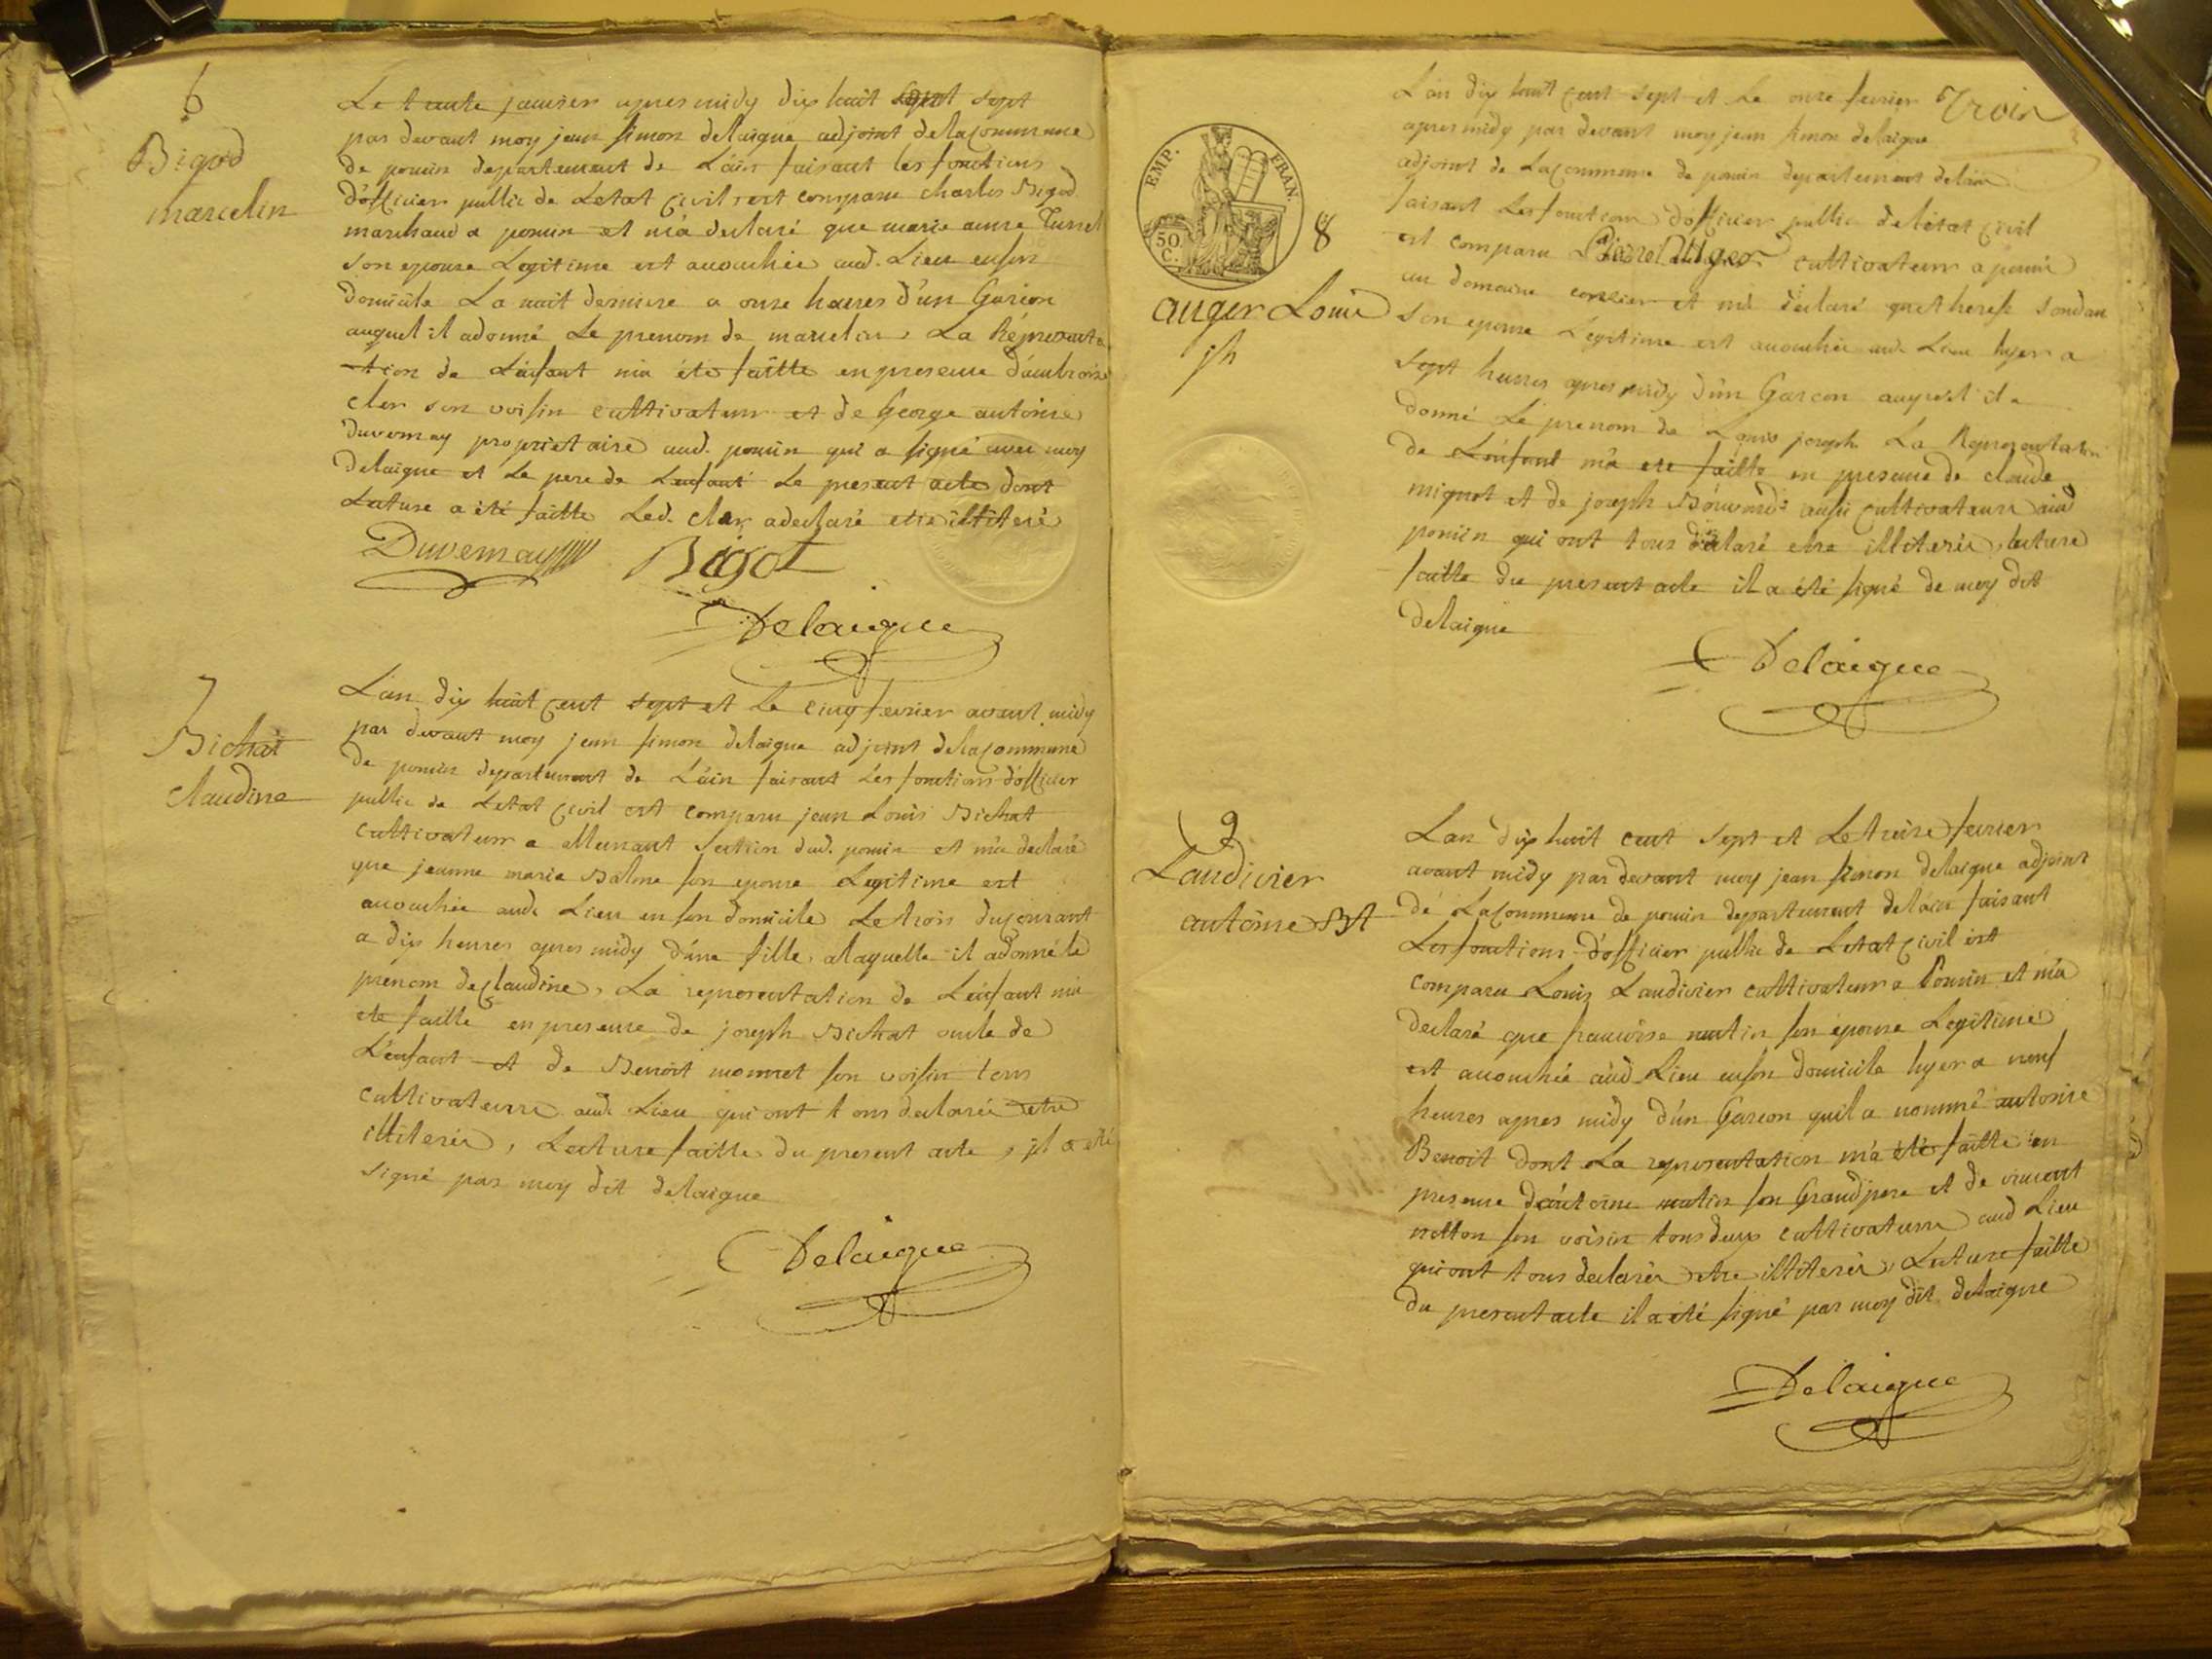 6
Bigod
marcelin
Le trente janvier apres midy dix huit cent sept
par devant moy jean simon delaigue adjoint delacommune
de poncin departement de L'ain faisant les fonctions
d'officier public de Letat civil est comparu charles Bigod
marchand a poncin et m'a declaré que marie anne
son epouse Legitime est accouchée aud. Lieu enson
domicile La nuit derniere a onze heures d'un Garçon
auquel il adonné Le prenom de marcelin, La Réprésenta
-tion de L'enfant m'a été faitte en presence d'ambroise
cler son voisin cultivateur et de George antoine
duvernay proprietaire aud. poncin qui a signé avec moy
delaigue et Le pere de Lenfant Le present acte dont
Lecture a été faitte Led. cler adeclaré etre illiteré
Duvernay Bigot
Delaigue
7
Bichat
claudine
L'an dix huit cent sept et Le cinq fevrier avant midy
par devant moy jean simon delaigue adjoint delacommune
de poncin departement de L'ain faisant Les fonctions d'officier
public de Letat civil est comparu jean Louis Bichat
cultivateur a allement section dud. poncin et m'a declaré
que jeanne marie Balme son epouse Legitime est
accouchée aud. Lieu en son domicile Le trois ducourant
a dix heures apres midy d'une fille, alaquelle il adonné le
prenom de claudine, La representation de L'enfant m'a
ete faitte en presence de joseph Bichat oncle de
L'enfant et de Benoit monnet son voisin tous
cultivateurs aud. Lieu qui ont tous declarés etre
illiterés, Lecture faitte du present acte, il a été
signé par moy dit delaigue
Delaigue
Trois
EMP. FRAN.
50 C.
8
auger Louis
jh
L'an dix huit cent sept et Le onze fevrier
apres midy par devant moy jean simon delaigue
adjoint de Lacommune de poncin departement delain
faisant Les fonctions d'officier public deletat civil
est comparu Pierre Auger cultivateur a poncin
au domaine et m'a declaré que therese
son epouse Legitime est accouchée aud. Lieu hyer a
sept heures apres midy d'un Garcon auquel il a
donné Le prenom de Louis joseph La Representation
de L'enfant m'a ete faitte en presence de claude
mignot et de joseph aussi cultivateurs aud
poncin qui ont tous déclaré etre illiterés, lecture
faitte du present acte il a été signé de moy dit
delaigue
Delaigue
9
Laudivier
antoine Bt
L'an dix huit cent sept et Le treize fevrier
avant midy par devant moy jean simon delaigue adjoint
de Lacommune de poncin departement delain faisant
Les fonctions d'officier public de Letat civil est
comparu Louis Laudivier cultivateur a Poncin et m'a
declaré que francoise mutin son epouse Legitime
est accouchée aud Lieu enson domicile hyer a neuf
heures apres midy d'un Garcon quil a nommé antoine
Benoit dont La representation m'a été faitte en
presence d'antoine mutin son Grandpere et de vincent
son voisin tous deux cultivateurs aud Lieu
qui ont tous declarés etre illiterés, Lecture faitte
du present acte il a été signé par moy dit delaigue
Delaigue